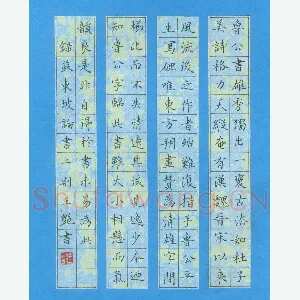 魯公書雄秀獨出一變古法如杜子
美詩格力天縱奄有漢魏晉宋以來
風流後之作者殆難復措手魯公平
生寫碑唯東方朔畫贊為清雄字間
櫛比而不失清遠其後見逸少本迺
知魯公字臨此書雖大相懸而氣
韻良是非自得於書未易為此
錄蘇東坡論書二則 書